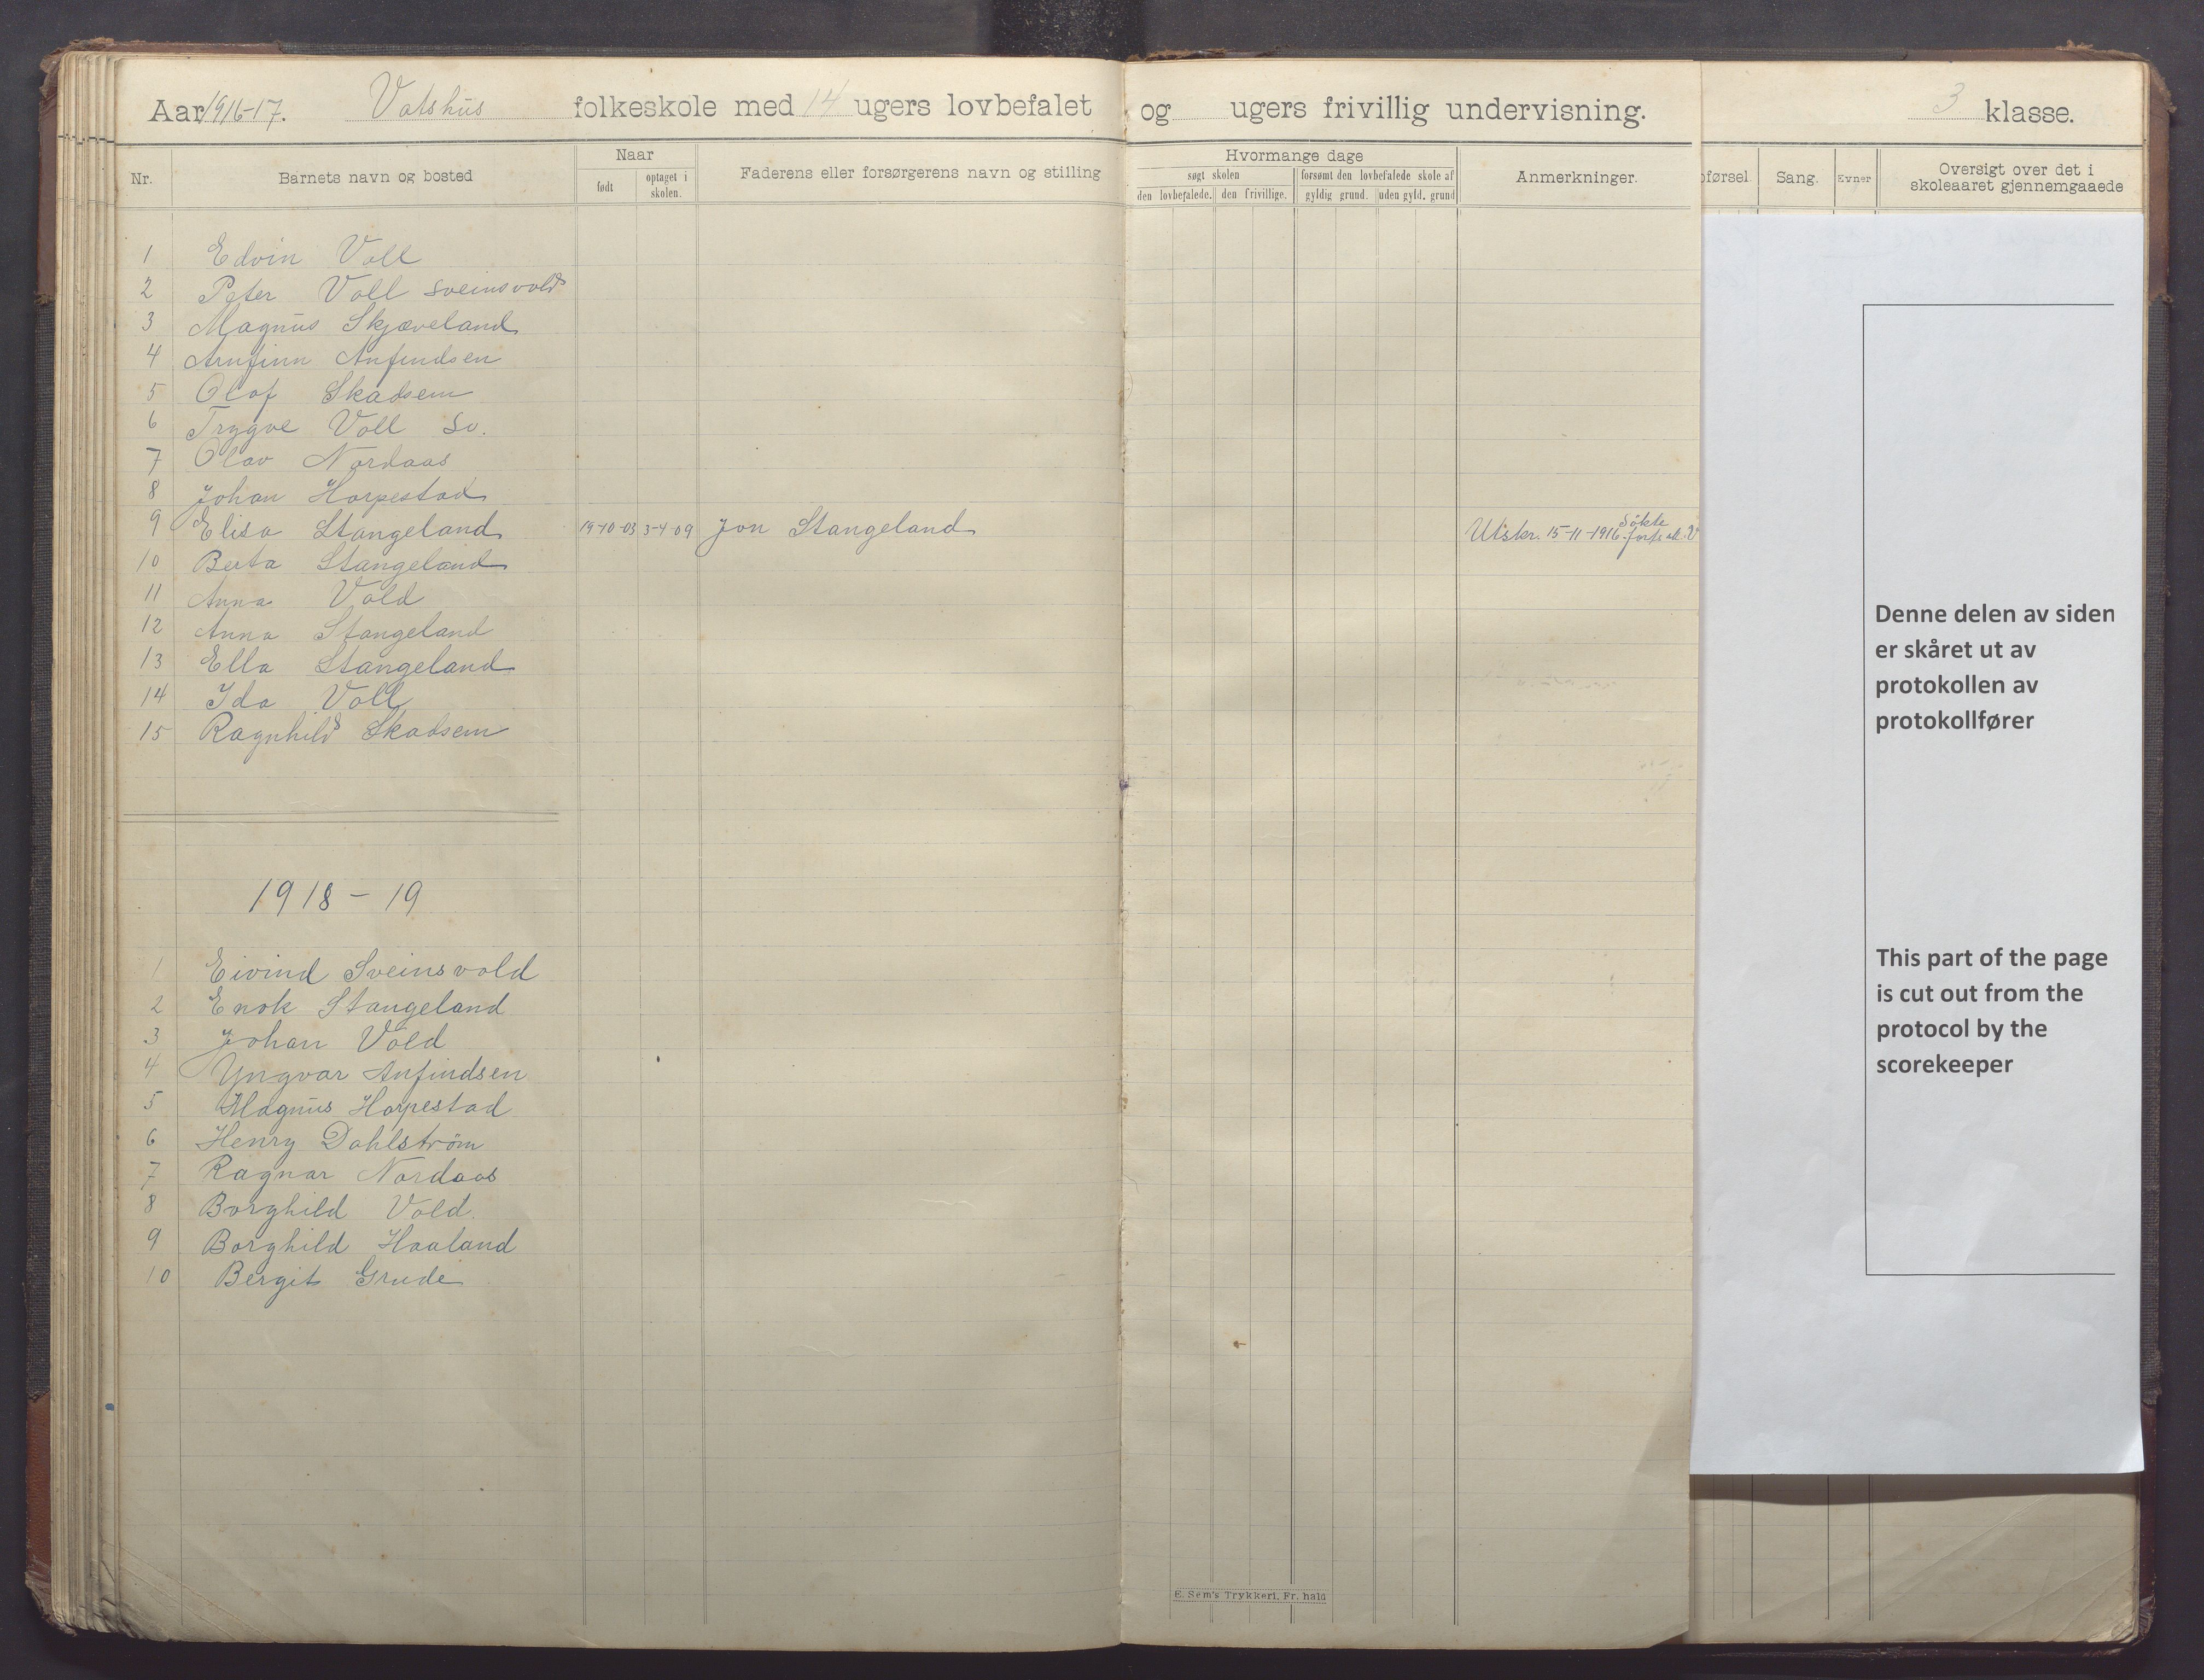 Aar 1916-17. Valshus folkeskole med 14 ugers lovbefalet og ugers frivillig undervisning. 3 klasse.
Nr. Barnets navn og bosted Naar født optaget i skolen. Faderens eller forsørgerens navn og stilling Hvormange dage søgt skolen den lovbefalede. den frivillige. forsømt den lovbefalede skole af gyldig grund. uden gyld. grund Anmerkninger. oførsel. Sang. Evner Oversigt over det i skoleaaret gjennemgaaede
1 Edvin Voll
2 Peter Voll Sveinsvold
3 Magnus Skjæveland
4 Arnfinn Anfindsen
5 Olaf Skadsem
6 Trygve Voll Sv.
7 Olav Nordaas
8 Johan Horpestad
9 Elisa Stangeland 19-10-03 3-4-09 Jon Stangeland Utskr. 15-11-1916 Søkte
10 Berta Stangeland
11 Anna Vold
12 Anna Stangeland
13 Ella Stangeland
14 Ida Voll
15 Ragnhild Skadsem
1918-19
1 Eivind Sveinsvold
2 Enok Stangeland
3 Johan Vold
4 Yngvar Anfindsen
5 Magnus Horpestad
6 Henry Dahlstrøm
7 Ragnar Nordaas
8 Borghild Vold.
9 Borghild Haaland
10 Bergit Grude
E. Sem's Trykkeri, Fr. hald
Denne delen av siden
er skåret ut av
protokollen av
protokollfører
This part of the page
is cut out from the
protocol by the
scorekeeper